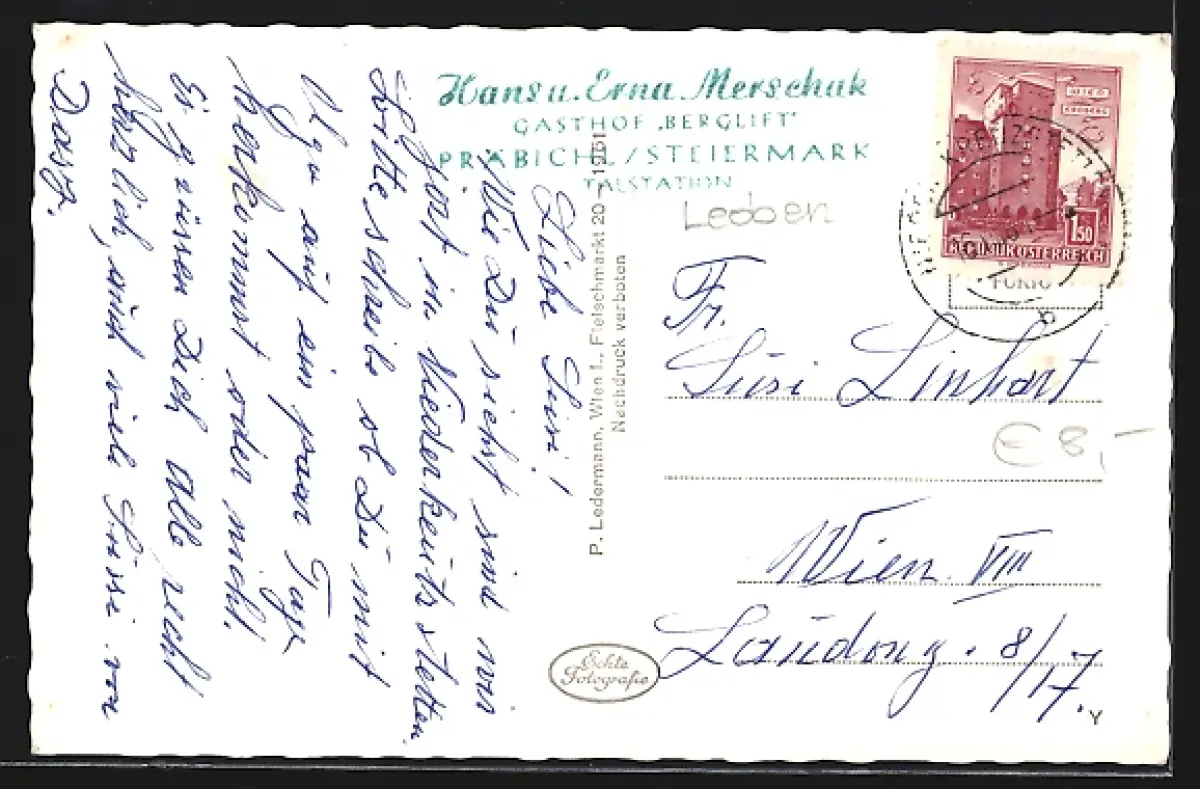 Hans u. Erna Merschak
GASTHOF „BERGLIFT"
PRÄBICHL/STEIERMARK
TALSTATION
Leoben
Liebe Susi!
Wie Du siehst sind wir
jetzt in Niederkreuzstetten.
Bitte schreibe ob Du mit
auf ein paar Tage
herkommst oder nicht.
Es grüssen Dich alle recht
herzlich, auch viele Grüsse von
P. Ledermann, Wien I., Fleischmarkt 20 - 19761
Nachdruck verboten
Echte
Fotografie
1.50
REPUBLIK ÖSTERREICH
PORTO
Fr.
Susi Linhart
€ 8,-
Wien. VIII
Laudong. 8/17.